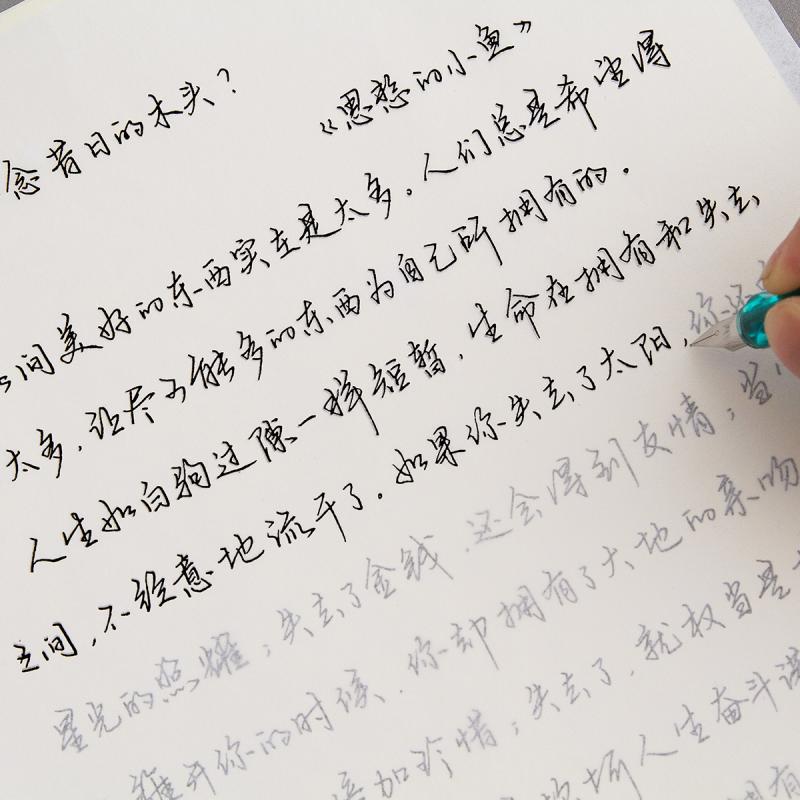 念昔日的木头?
《 的小鱼》
间美好的东西实在是太多。人们总是希望得
太多,让尽可能多的东西为自己所拥有的.
人生如白驹过隙一样短暂,生命在拥有和失去
之间,不经意地流干了。如果你失去了太阳,你还
星光的照耀;失去了金钱,还会得到友情;当
离开你的时候,你却拥有了大地的亲吻
加珍惜;失去了,就权当是
人生奋斗
拥有